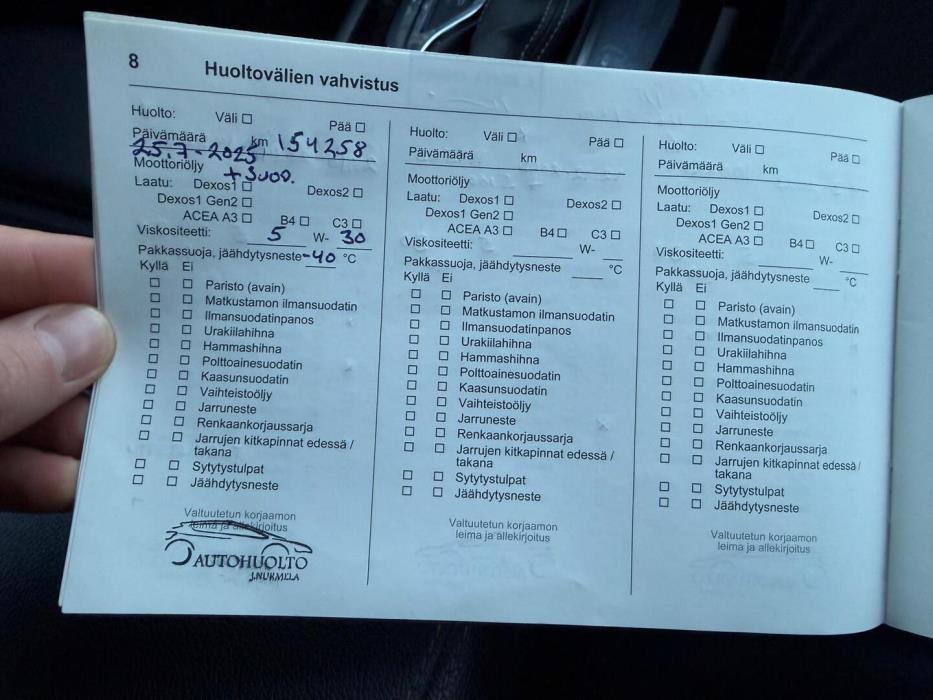 8 Huoltovälien vahvistus
Huolto: Väli ☐ Pää ☐
Päivämäärä km 154258
25.7-2025
Moottoriöljy
Laatu: Dexos1 ☐ Dexos2 ☐
Dexos1 Gen2 ☐
ACEA A3 ☐ B4 ☐ C3 ☐
Viskositeetti: 5 W- 30
Pakkassuoja, jäähdytysneste -40 °C
Kyllä Ei
☐ ☐ Paristo (avain)
☐ ☐ Matkustamon ilmansuodatin
☐ ☐ Ilmansuodatinpanos
☐ ☐ Urakiilahihna
☐ ☐ Hammashihna
☐ ☐ Polttoainesuodatin
☐ ☐ Kaasunsuodatin
☐ ☐ Vaihteistoöljy
☐ ☐ Jarruneste
☐ ☐ Renkaankorjaussarja
☐ ☐ Jarrujen kitkapinnat edessä /
takana
☐ ☐ Sytytystulpat
☐ ☐ Jäähdytysneste
Valtuutetun korjaamon
leima ja allekirjoitus
AUTOHUOLTO
J.NURMELA
Huolto: Väli ☐ Pää ☐
Päivämäärä km
Moottoriöljy
Laatu: Dexos1 ☐ Dexos2 ☐
Dexos1 Gen2 ☐
ACEA A3 ☐ B4 ☐ C3 ☐
Viskositeetti: W-
Pakkassuoja, jäähdytysneste °C
Kyllä Ei
☐ ☐ Paristo (avain)
☐ ☐ Matkustamon ilmansuodatin
☐ ☐ Ilmansuodatinpanos
☐ ☐ Urakiilahihna
☐ ☐ Hammashihna
☐ ☐ Polttoainesuodatin
☐ ☐ Kaasunsuodatin
☐ ☐ Vaihteistoöljy
☐ ☐ Jarruneste
☐ ☐ Renkaankorjaussarja
☐ ☐ Jarrujen kitkapinnat edessä /
takana
☐ ☐ Sytytystulpat
☐ ☐ Jäähdytysneste
Valtuutetun korjaamon
leima ja allekirjoitus
Huolto: Väli ☐ Pää ☐
Päivämäärä km
Moottoriöljy
Laatu: Dexos1 ☐ Dexos2 ☐
Dexos1 Gen2 ☐
ACEA A3 ☐ B4 ☐ C3 ☐
Viskositeetti: W-
Pakkassuoja, jäähdytysneste °C
Kyllä Ei
☐ ☐ Paristo (avain)
☐ ☐ Matkustamon ilmansuodatin
☐ ☐ Ilmansuodatinpanos
☐ ☐ Urakiilahihna
☐ ☐ Hammashihna
☐ ☐ Polttoainesuodatin
☐ ☐ Kaasunsuodatin
☐ ☐ Vaihteistoöljy
☐ ☐ Jarruneste
☐ ☐ Renkaankorjaussarja
☐ ☐ Jarrujen kitkapinnat edessä /
takana
☐ ☐ Sytytystulpat
☐ ☐ Jäähdytysneste
Valtuutetun korjaamon
leima ja allekirjoitus